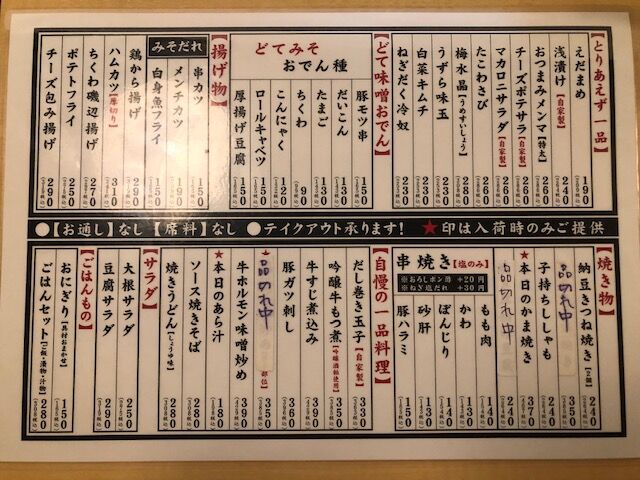 【とりあえず一品】
えだまめ 190
浅漬け【自家製】 240
おつまみメンマ【特大】 260
チーズポテサラ【自家製】 260
マカロニサラダ【自家製】 260
たこわさび 260
梅水晶【うめすいしょう】 280
うずら味玉 230
白菜キムチ 230
ねぎだく冷奴 230
【どて味噌おでん】
どてみそ
おでん種
豚モツ串 150
だいこん 130
たまご 130
ちくわ 90
こんにゃく 120
ロールキャベツ 150
厚揚げ豆腐 150
【揚げ物】
みそだれ
串カツ 150
メンチカツ 190
白身魚フライ 150
鶏から揚げ 290
ハムカツ【厚切り】 310
ちくわ磯辺揚げ 270
ポテトフライ 250
チーズ包み揚げ 290
●【お通し】なし【席料】なし ●テイクアウト承ります! ★印は入荷時のみご提供
【焼き物】
納豆きつね焼き【2個】 240
品切れ中 350
子持ちししゃも 240
★本日のかま焼き 370
品切れ中 240
串焼き【塩のみ】
※おろしポン酢 +20円
※ねぎ塩だれ +30円
もも肉 140
かわ 140
ぼんじり 140
砂肝 130
豚ハラミ 150
【自慢の一品料理】
だし巻き玉子【自家製】 330
吟醸牛もつ煮【吟醸酒粕使用】 350
牛すじ煮込み 390
豚ガツ刺し 360
★品切れ中 部位 350
牛ホルモン味噌炒め 390
★本日のあら汁 180
ソース焼きそば 280
焼きうどん【しょうゆ味】 280
【サラダ】
大根サラダ 250
豆腐サラダ 290
【ごはんもの】
おにぎり【具材おまかせ】 150
ごはんセット【ご飯・漬物・汁物】 280